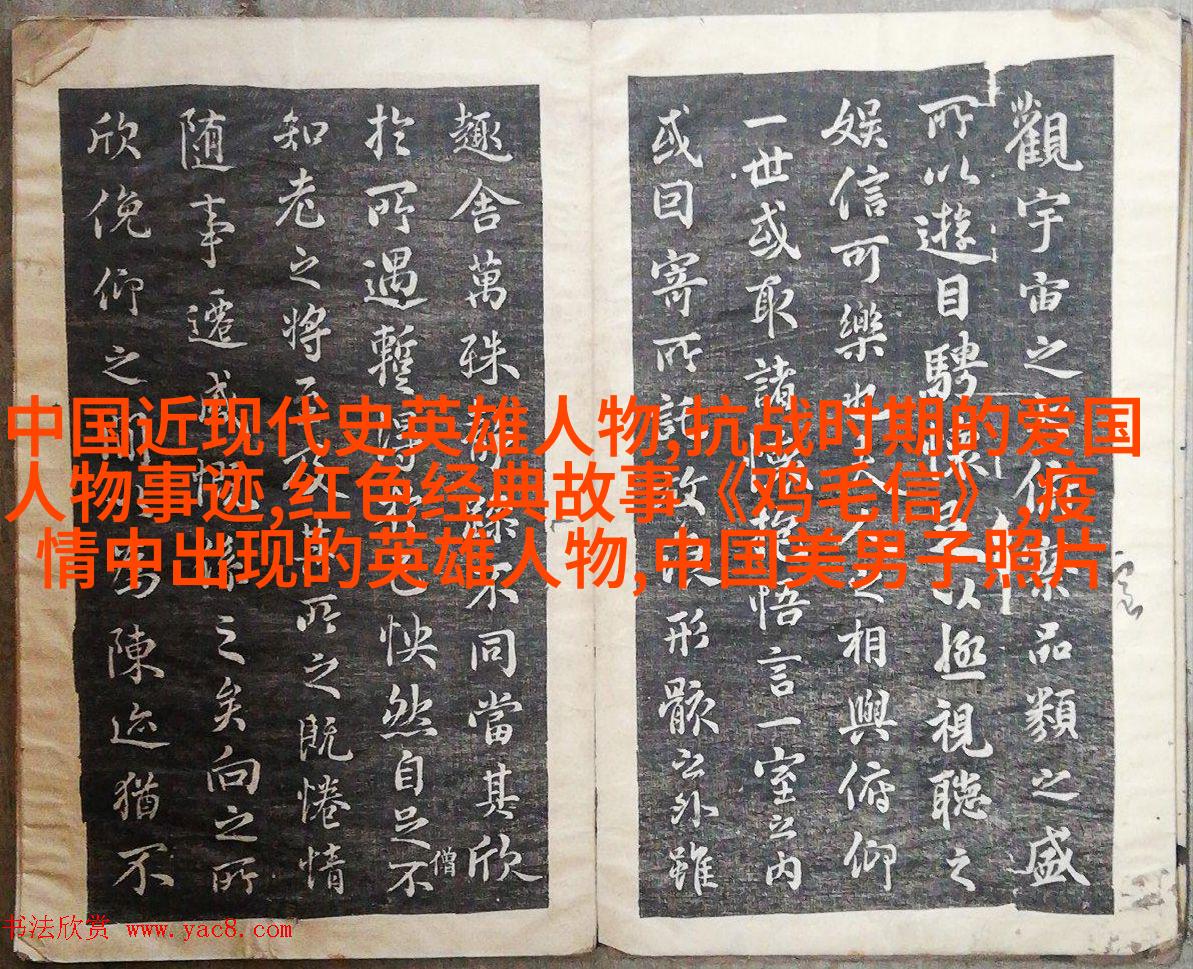 觀宇宙之俯察品類之盛
所以遊目騁懷足以極視聽之
娛信可樂也夫人之相與俯仰
一世或取諸懷抱悟言一室之内
或因寄所託放浪形骸之外雖
趣舍萬殊靜躁不同當其欣
於所遇暫得於己怏然自足不
僧
知老之將至及其所之既惓情
随事遷感慨係之矣向之所
欣俛仰之間以為陳迹猶不
中国近现代史英雄人物,抗战时期的爱国
人物事迹,红色经典故事《鸡毛信》,疫
情中出现的英雄人物,中国美男子照片
书法欣赏 www.yac8.com